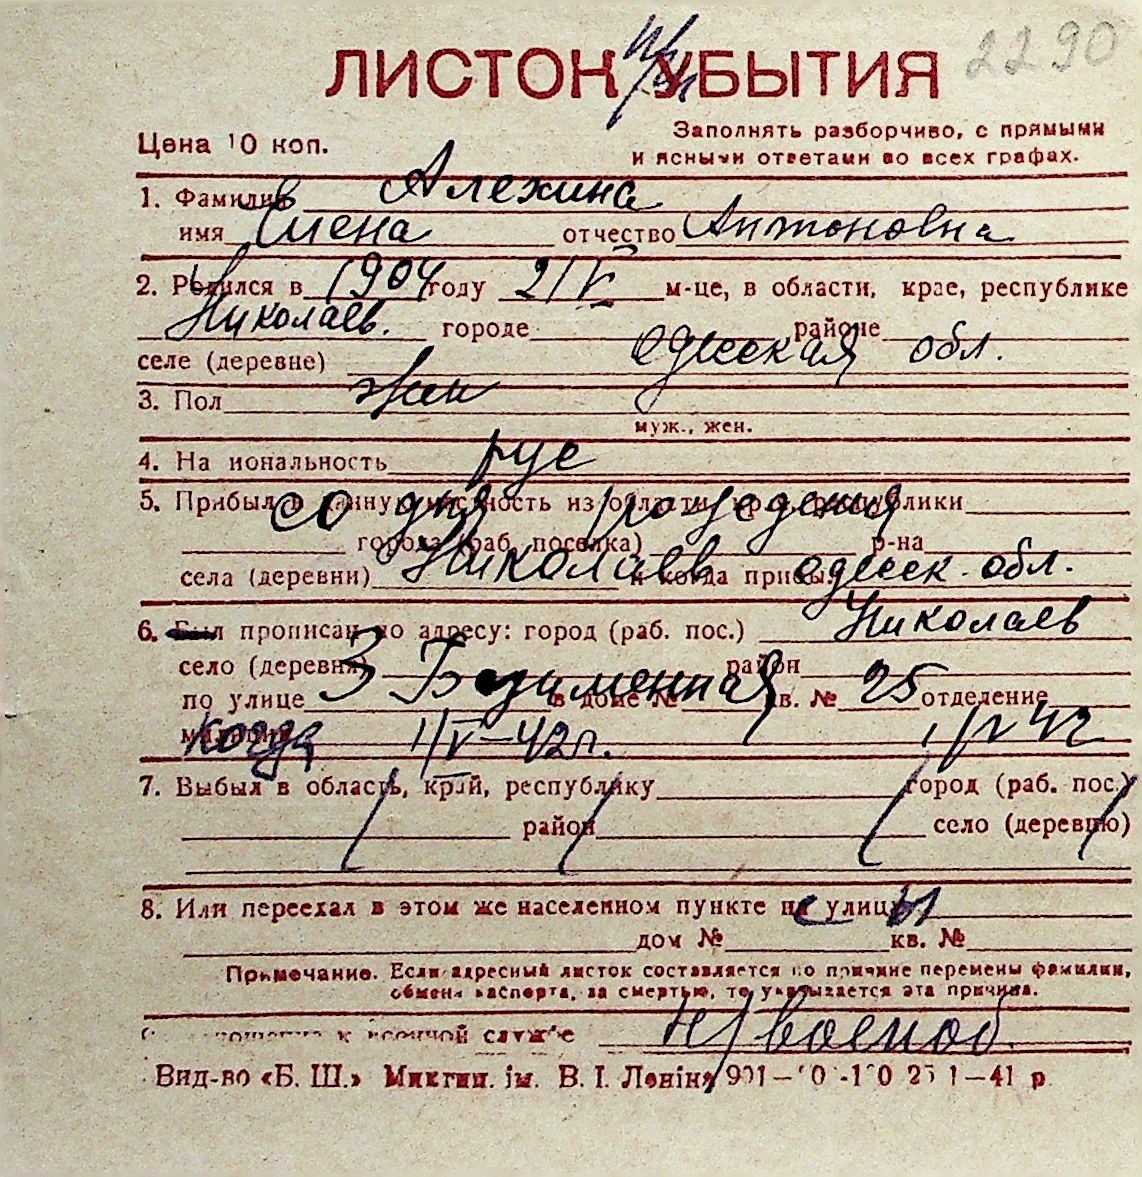 2290
ЛИСТОК УБЫТИЯ
Цена 10 коп.
Заполнять разборчиво, с прямыми
и ясными ответами во всех графах.
1. Фамилия Алехина
имя Елена отчество Антоновна
2. Родился в 1904 году 21/V м-це, в области, крае, республике
Николаев. городе районе
селе (деревне) Одесская обл.
3. Пол жен
муж., жен.
4. Национальность рус
5. Прибыл в данную местность из области, края, республики
со дня рождения
города (раб. поселка) р-на
села (деревни) Николаев и когда прибыл одесск. обл.
6. Был прописан по адресу: город (раб. пос.) Николаев
село (деревня) район
по улице 3 Безименная в доме № кв. № 25 отделение
милиции когда 1/IV-42г. 1/IV 42
7. Выбыл в область, край, республику город (раб. пос.)
район село (деревню)
8. Или переехал в этом же населенном пункте на улицу
дом № кв. №
Примечание. Если адресный листок составляется по причине перемены фамилии,
обмена паспорта, за смертью, то указывается эта причина.
отношение к военной службе н/военоб.
Вид-во «Б. Ш.» Микгип. ім. В. І. Леніна 25 1—41 р